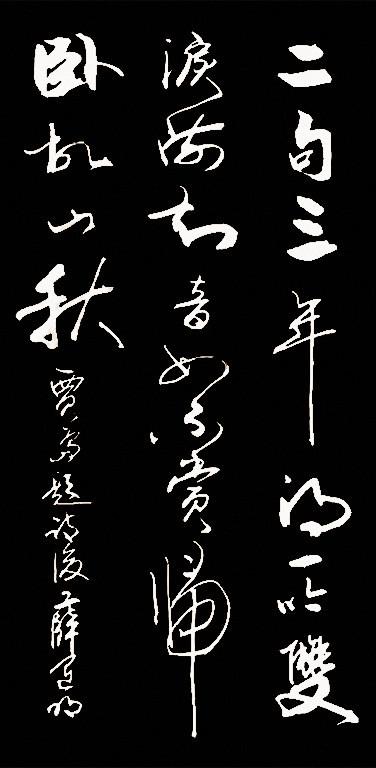 二句三年得一吟雙
淚流知音如不賞歸
卧故山秋 賈島題詩後 薛明